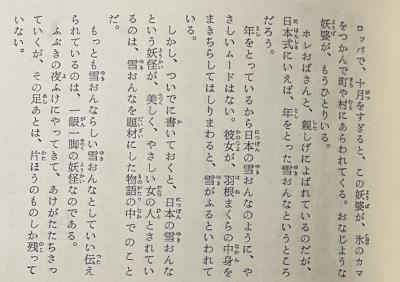 ロッパで、十月をすぎると、この妖婆が、氷のカマ
をつかんで町や村にあらわれてくる。おなじような
妖婆が、もうひとりいる。
ホレおばさんと、親しげによばれているのだが、
日本式にいえば、年をとった雪おんなというところ
だろう。
年をとっているから日本の雪おんなのように、や
さしいムードはない。彼女が、羽根まくらの中身を
まきちらしてはしりまわると、雪がふるといわれて
いる。
しかし、ついでに書いておくと、日本の雪おんな
という妖怪が、美しく、やさしい女の人とされてい
るのは、雪おんなを題材にした物語の中でのこと
だ。
もっとも雪おんならしい雪おんなとしていい伝え
られているのは、一眼一脚の妖怪なのである。
ふぶきの夜ふけにやってきて、あけがたたちさっ
ていくが、その足あとは、片ほうのものしか残って
いない。